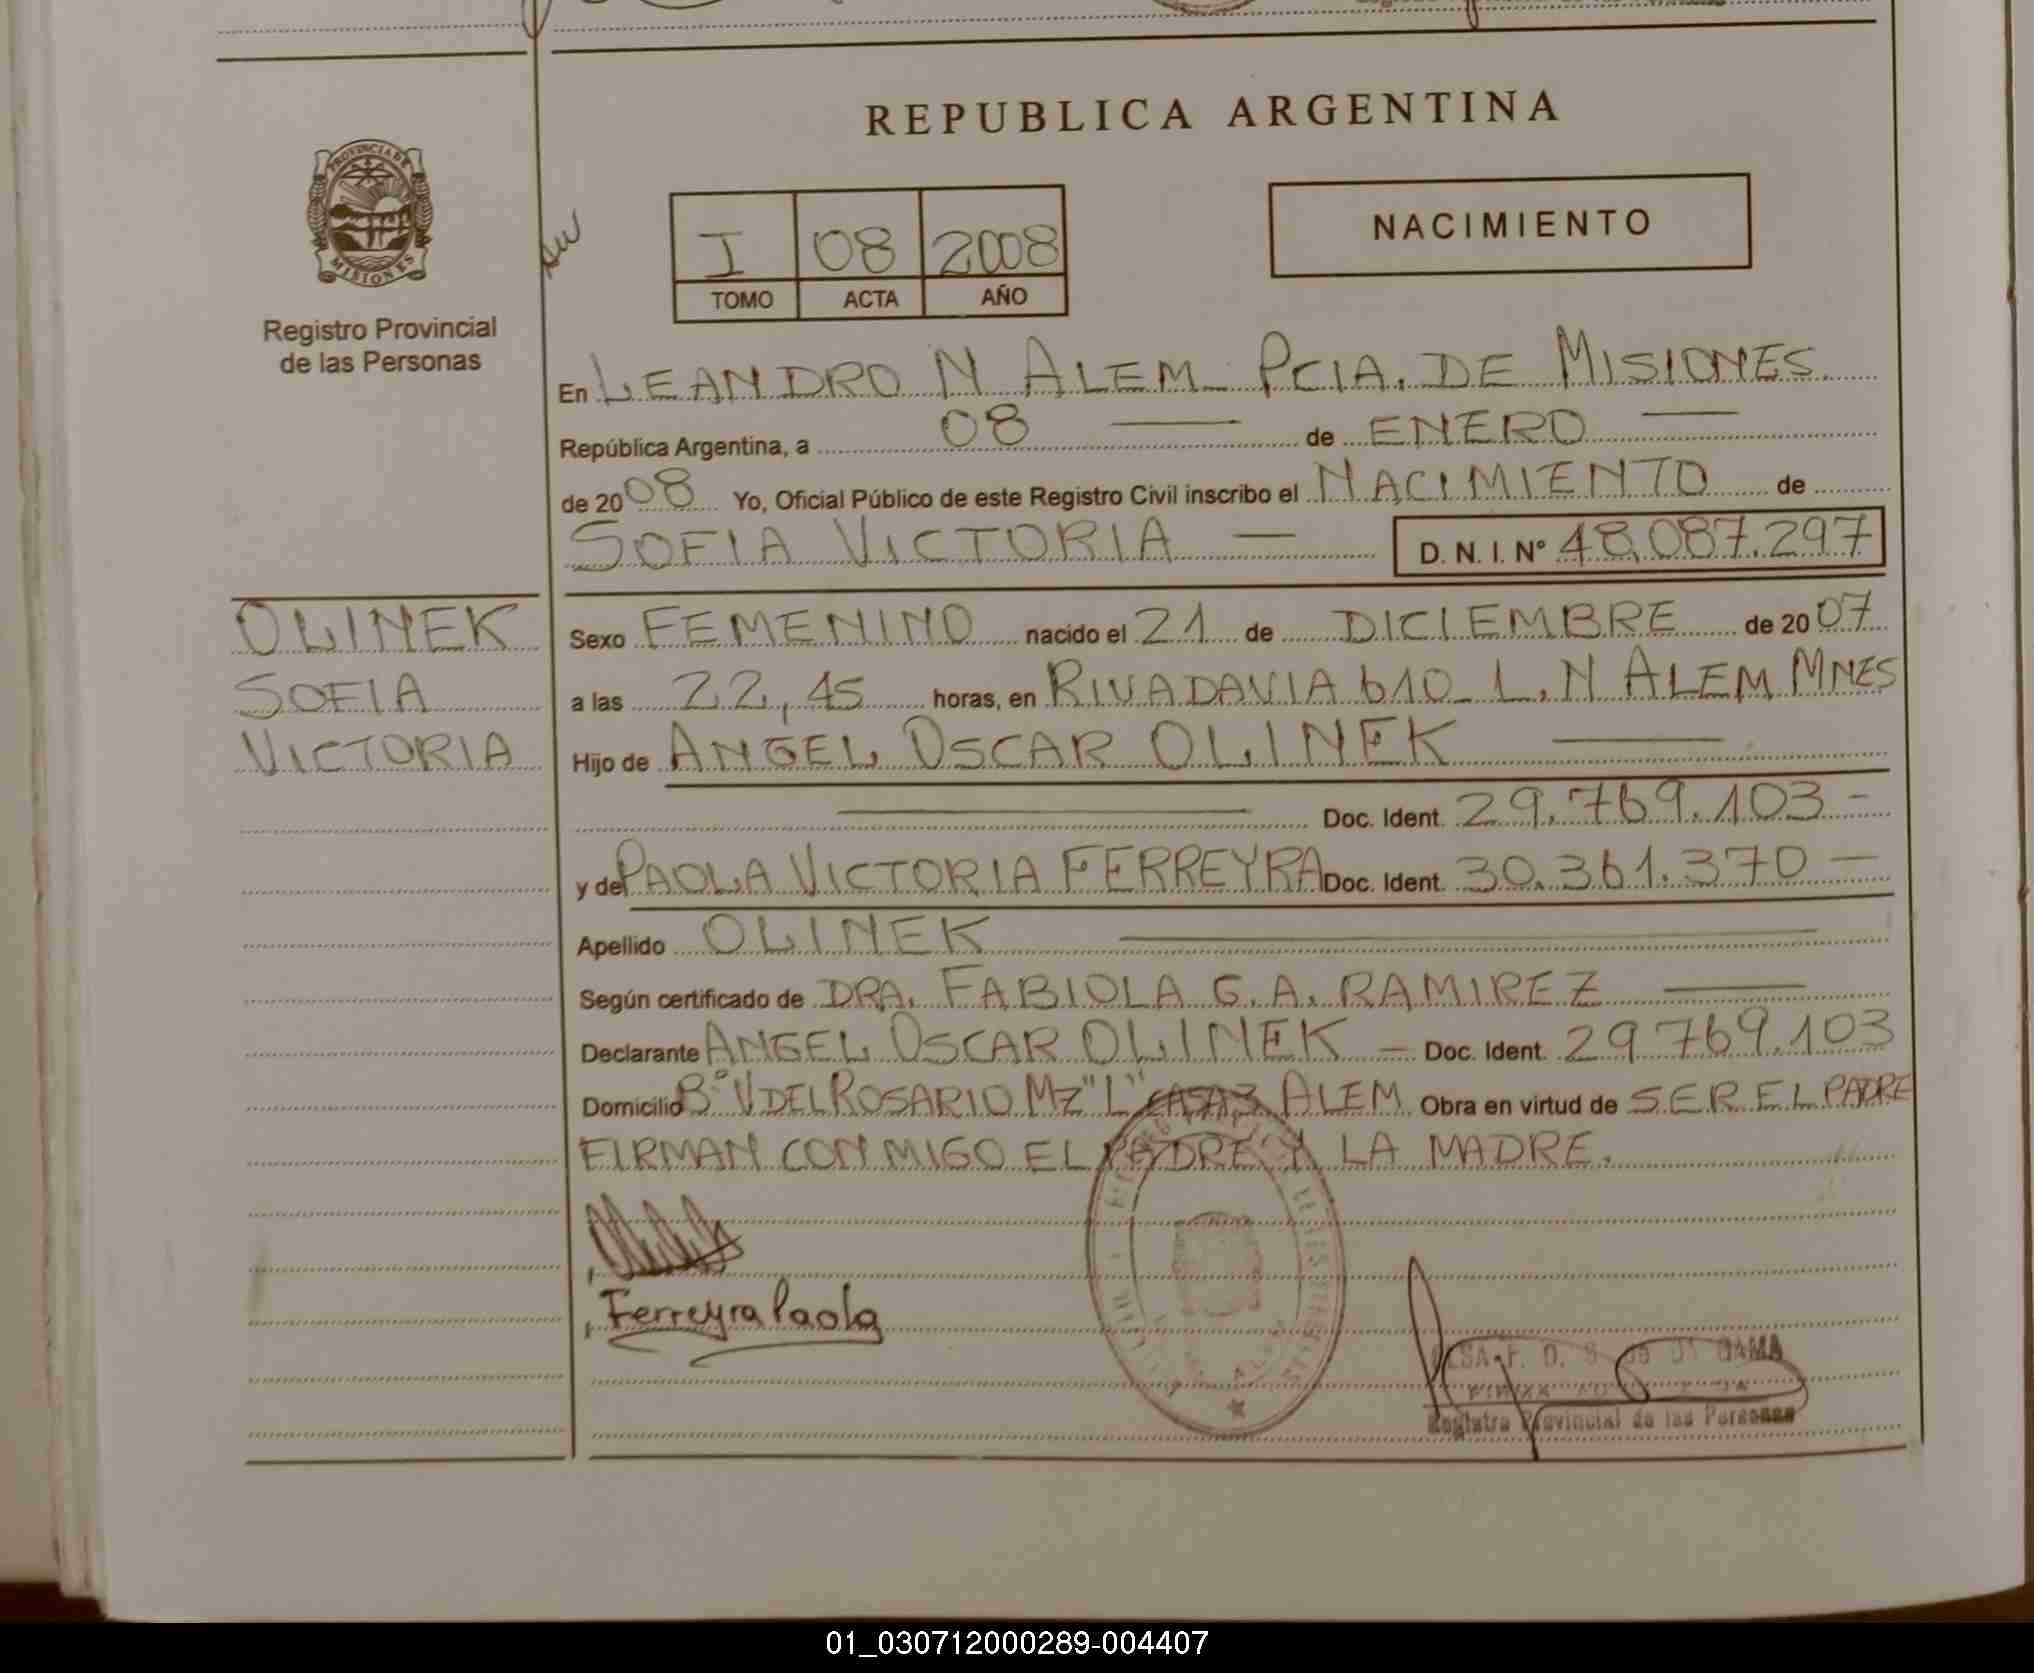 REPUBLICA ARGENTINA
PROVINCIA DE
MISIONES
Registro Provincial
de las Personas
I 08 2008
TOMO ACTA AÑO
NACIMIENTO
En LEANDRO N ALEM PCIA. DE MISIONES.
República Argentina, a 08 — de ENERO —
de 2008 Yo, Oficial Público de este Registro Civil inscribo el NACIMIENTO de
SOFIA VICTORIA — D. N. I. Nº 48.087.297
OLINEK
SOFIA
VICTORIA
Sexo FEMENINO nacido el 21 de DICIEMBRE de 2007
a las 22,45 horas, en RIVADAVIA 610 L. N ALEM MNES
Hijo de ANGEL OSCAR OLINEK —
— Doc. Ident. 29.769.103 -
y de PAOLA VICTORIA FERREYRA Doc. Ident. 30.361.370 —
Apellido OLINEK —
Según certificado de DRA. FABIOLA G. A. RAMIREZ —
Declarante ANGEL OSCAR OLINEK — Doc. Ident. 29 769.103
Domicilio Bº V DEL ROSARIO MZ "L" CASA 3 ALEM. Obra en virtud de SER EL PADRE
FIRMAN CONMIGO EL PADRE Y LA MADRE.
Ferreyra Paola
GAMA
Registro Provincial de las Personas
01_030712000289-004407